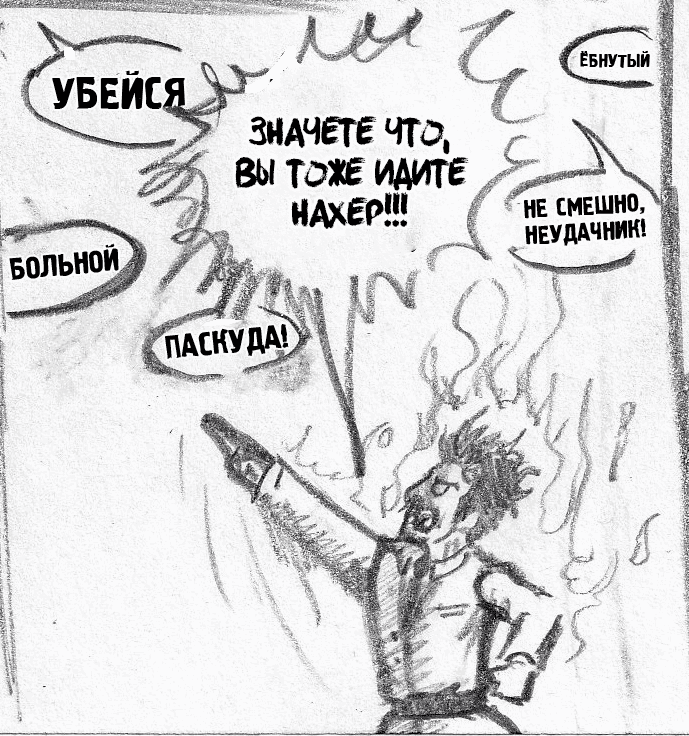 УБЕЙСЯ
ЁБНУТЫЙ
ЗНАЧЕТЕ ЧТО,
ВЫ ТОЖЕ ИДИТЕ
НАХЕР!!!
НЕ СМЕШНО,
НЕУДАЧНИК!
БОЛЬНОЙ
ПАСКУДА!